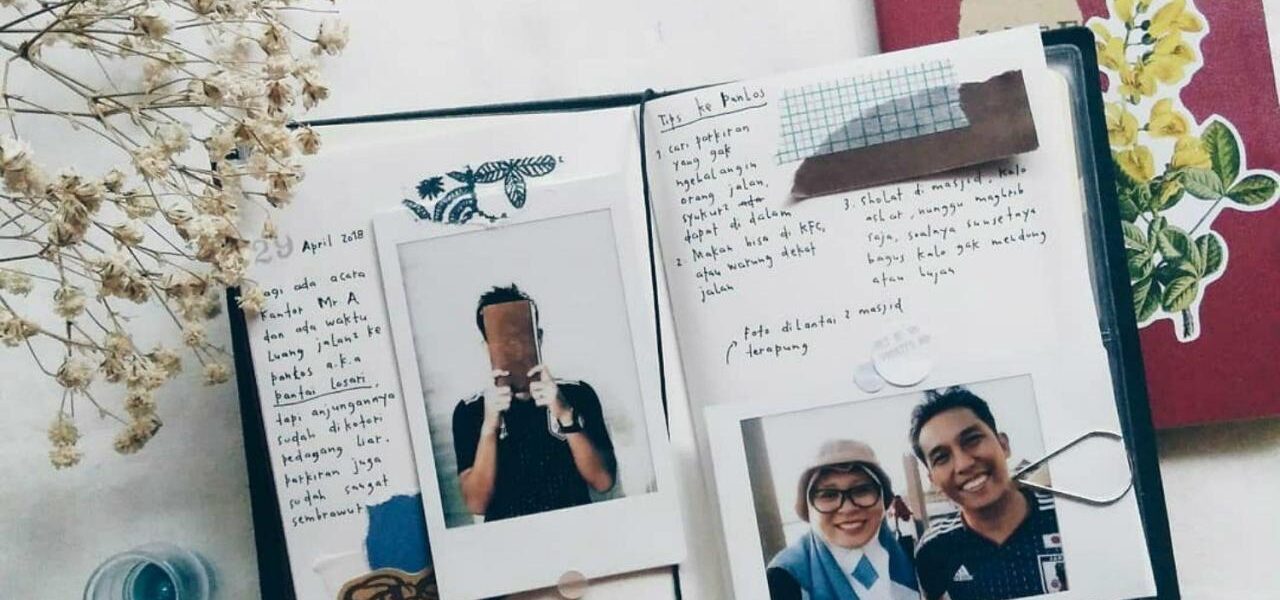 29 April 2018
agi ada acara
kantor Mr A
dan ada waktu
luang jalan² ke
pankos a.k.a
pantai losari,
tapi anjungannya
sudah dikotori
pedagang liar.
parkiran juga
sudah sangat
sembrawut
Tips ke Pankos
1. cari parkiran
yang gak
ngehalangin
orang jalan,
syukur²
dapat di dalam
2. Makan bisa di KFC,
atau warung dekat
jalan
3. Sholat di masjid, kalo
ashar, nunggu maghrib
saja, soalnya sunsetnya
bagus kalo gak mendung
atau hujan
foto di lantai 2 masjid
terapung